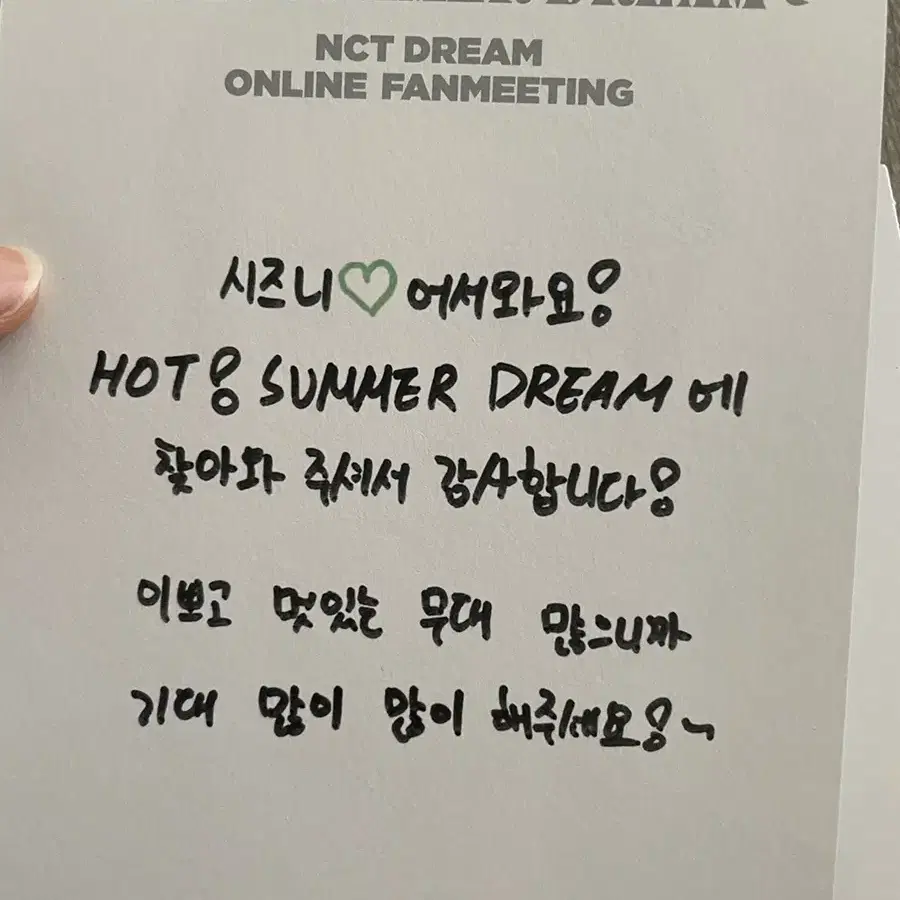 NCT DREAM
ONLINE FANMEETING
시즈니♡어서와요!
HOT! SUMMER DREAM에
찾아와 주셔서 감사합니다!
이쁘고 멋있는 무대 많으니까
기대 많이 많이 해주세요!~